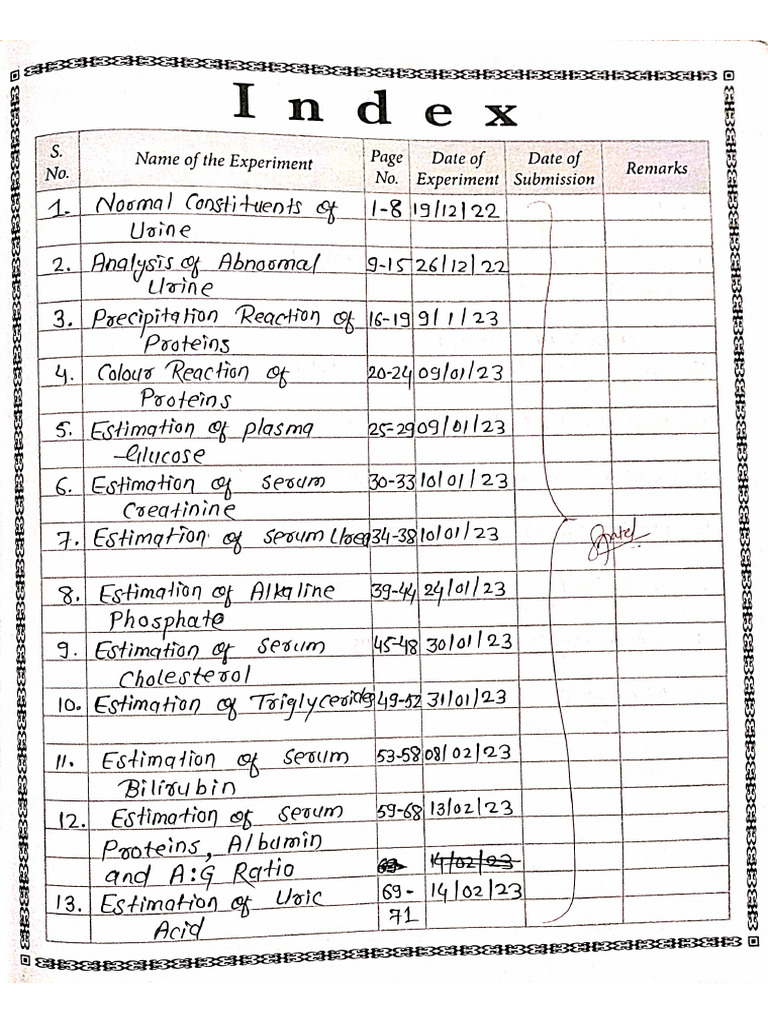 Index
S. No. Name of the Experiment Page No. Date of Experiment Date of Submission Remarks
1. Normal Constituents of 1-8 19/12/22
Urine
2. Analysis of Abnormal 9-15 26/12/22
Urine
3. Precipitation Reaction of 16-19 9/1/23
Proteins
4. Colour Reaction of 20-24 09/01/23
Proteins
5. Estimation of plasma 25-29 09/01/23
Glucose
6. Estimation of serum 30-33 10/01/23
Creatinine
7. Estimation of serum Urea 34-38 10/01/23
8. Estimation of Alkaline 39-44 24/01/23
Phosphate
9. Estimation of serum 45-48 30/01/23
Cholesterol
10. Estimation of Triglycerides 49-52 31/01/23
11. Estimation of serum 53-58 08/02/23
Bilirubin
12. Estimation of serum 59-68 13/02/23
Proteins, Albumin
and A:G Ratio 14/02/23
13. Estimation of Uric 69- 14/02/23
Acid 71